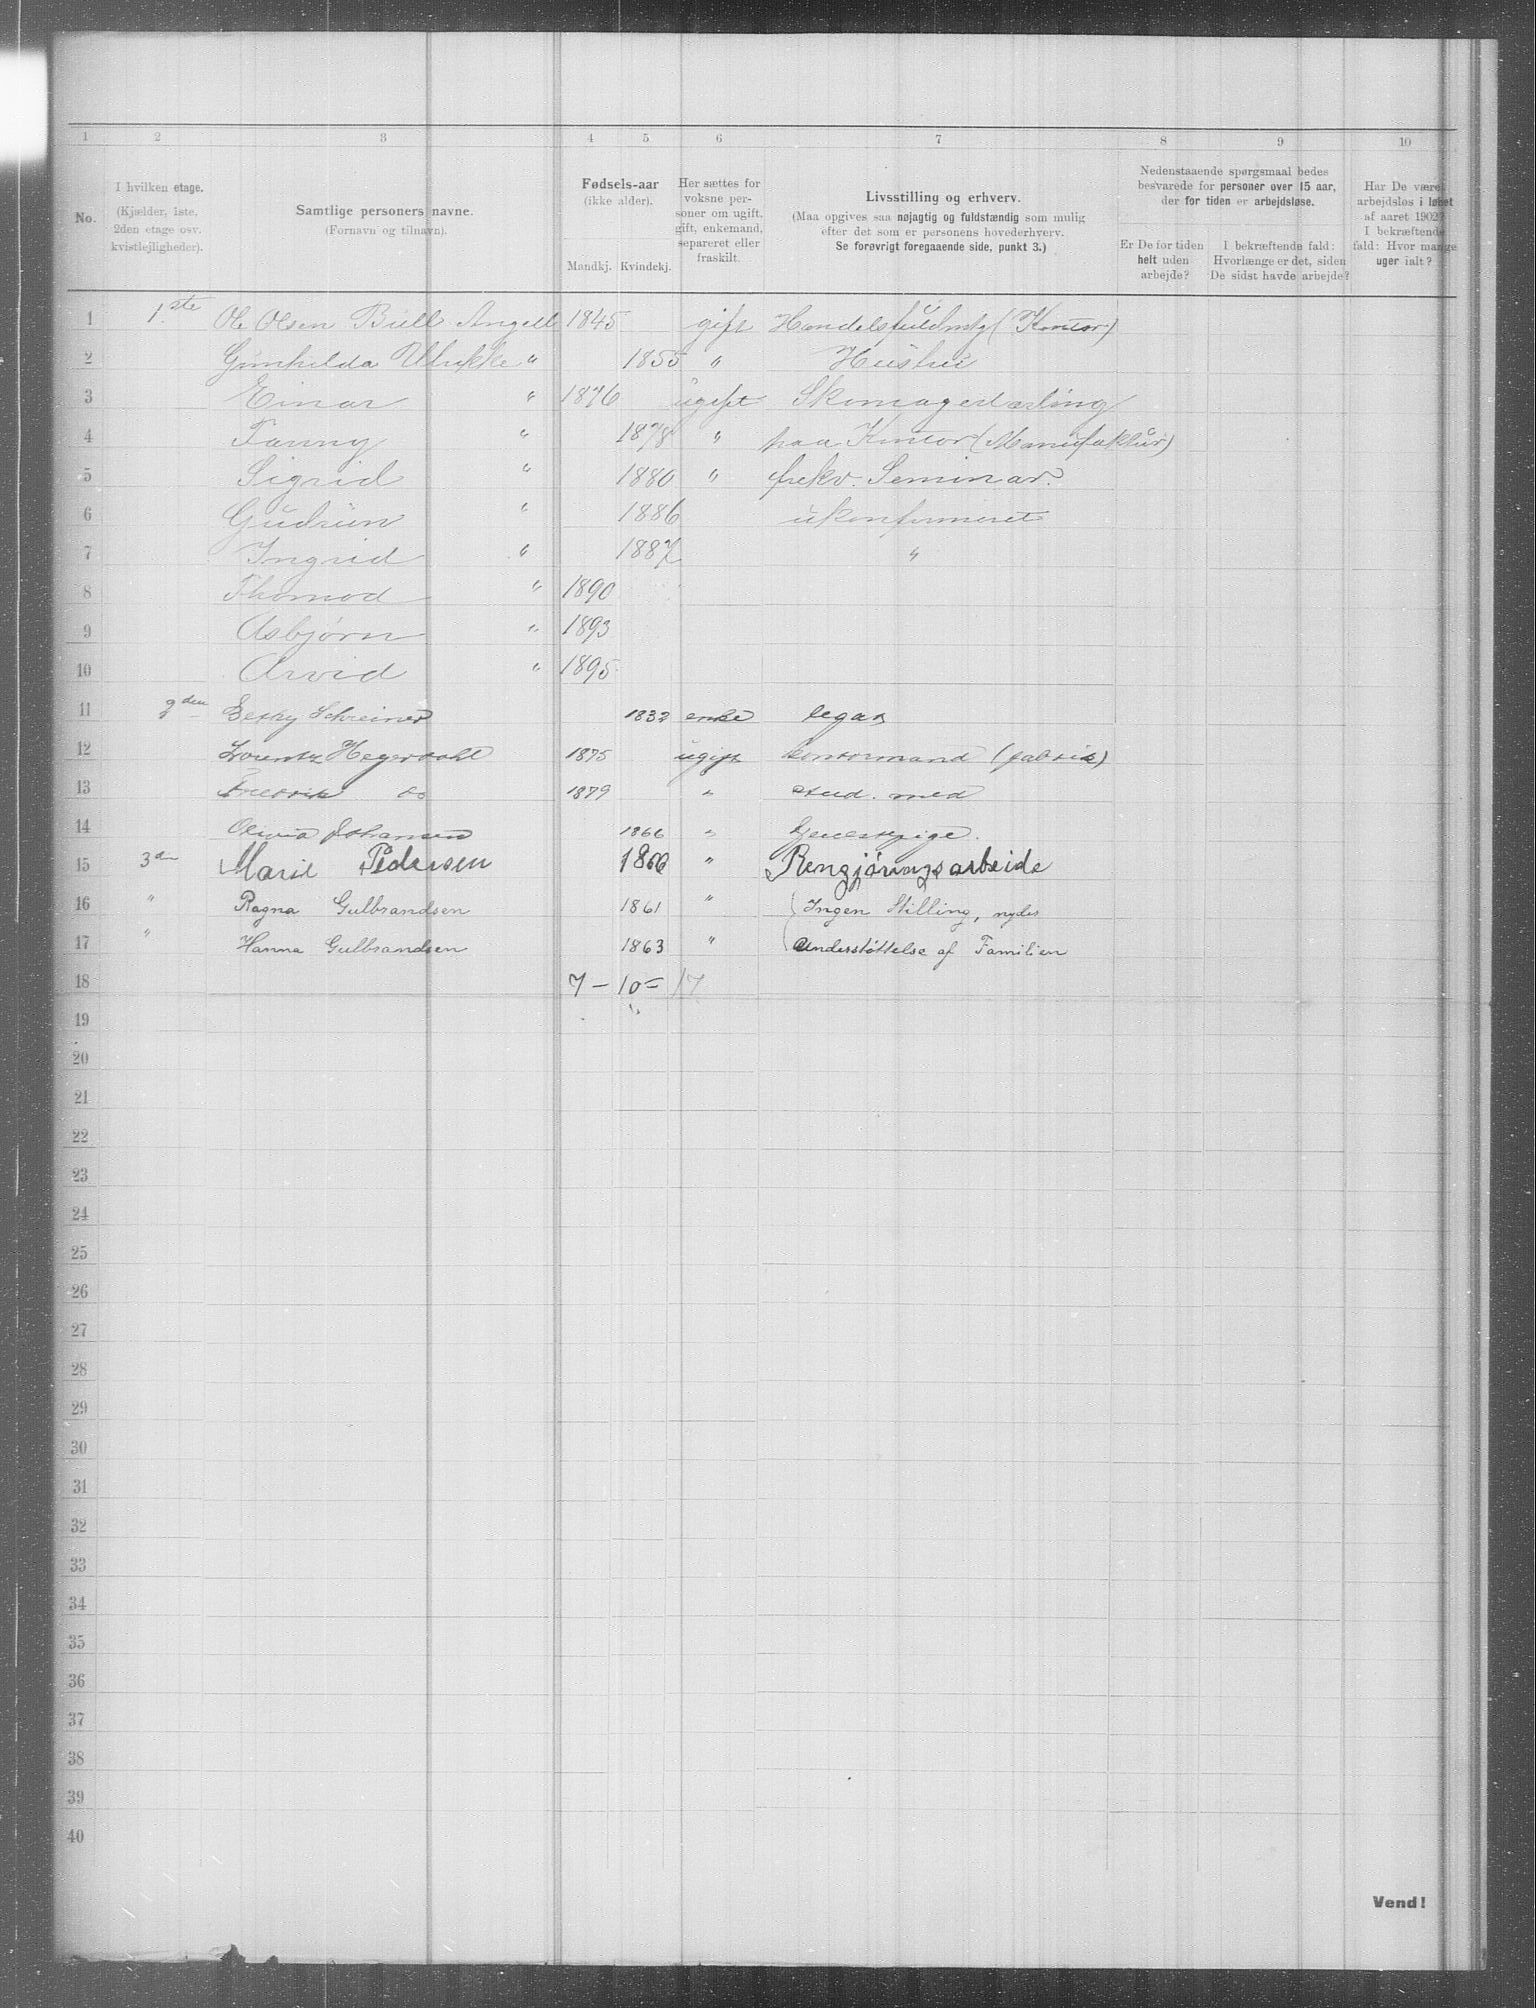 1 2 3 4 5 6 7 8 9 10
No.
I hvilken etage.
(Kjælder, 1ste,
2den etage osv.
kvistlejligheder).
Samtlige personers navne.
(Fornavn og tilnavn).
Fødsels-aar
(ikke alder).
Mandkj. Kvindekj.
Her sættes for
voksne per-
soner om ugift,
gift, enkemand,
separeret eller
fraskilt.
Livsstilling og erhverv.
(Maa opgives saa nøjagtig og fuldstændig som mulig
efter det som er personens hovederhverv.
Se forøvrigt foregaaende side, punkt 3.)
Nedenstaaende spørgsmaal bedes
besvarede for personer over 15 aar,
der for tiden er arbejdsløse.
Er De for tiden
helt uden
arbejde?
I bekræftende fald:
Hvorlænge er det, siden
De sidst havde arbejde?
Har De været
arbejdsløs i løbet
af aaret 1902?
I bekræftende
fald: Hvor mange
uger ialt?
1 1ste Ole Olsen Bull Angell 1845 gift Handelsfuldmtg (Kontor)
2 Gunhilda Ulrikke " 1855 " Hustru
3 Einar " 1876 ugift Skomagerlærling
4 Fanny " 1878 " paa Kontor (Manufaktur)
5 Sigrid " 1880 " frekv. Seminar.
6 Gudrun " 1886 ukonfirmeret
7 Ingrid " 1887 "
8 Thormod " 1890
9 Asbjørn " 1893
10 Arvid " 1895
11 2den Betsy Schreiner 1832 enke legat
12 Lorentz Hegerdahl 1875 ugift kontormand (fabrik)
13 Fredrik do 1879 " stud. med
14 Olivia Johansen 1866 " tjenestepige.
15 3die Marie Pedersen 1866 " Rengjøringsarbeide
16 " Ragna Gulbrandsen 1861 " Ingen Stilling, nyder
17 " Hanna Gulbrandsen 1863 " understøttelse af Familien
18 7 – 10 = 17
19
20
21
22
23
24
25
26
27
28
29
30
31
32
33
34
35
36
37
38
39
40
Vend!